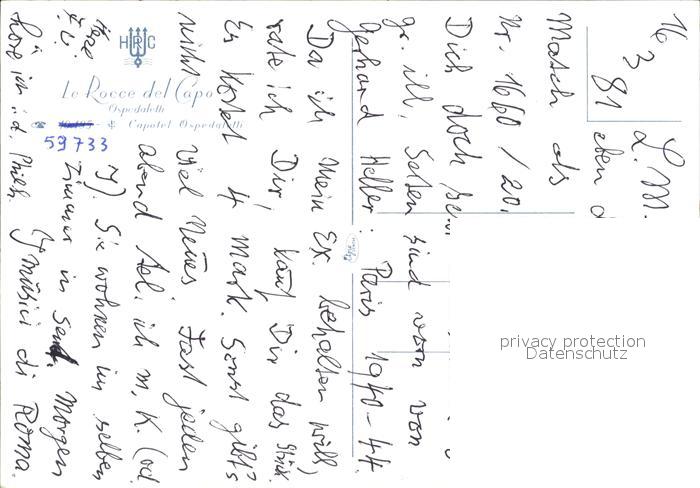 16 3 81
L. M. eben d
Match als
Nr. 1660 / 20.
Dich doch
gr. ill. Seiten sind vorn von
Gerhard Heller: Paris 1940-44.
Da ich mein Ex. behalten will,
rate ich Dir, kauf Dir das Stück.
Es kostet 4 Mark. Sonst gibt's
nicht viel Neues Fast jeden
abend tel. ich m. K. (od.
). Sie wohnen im selben
Zimmer in Morgen
höre ich i.d. Philh. I musici di Roma.
HRC
Le Rocce del Capo
Ospedaletti
Capotel Ospedaletti
59733
privacy protection
Datenschutz